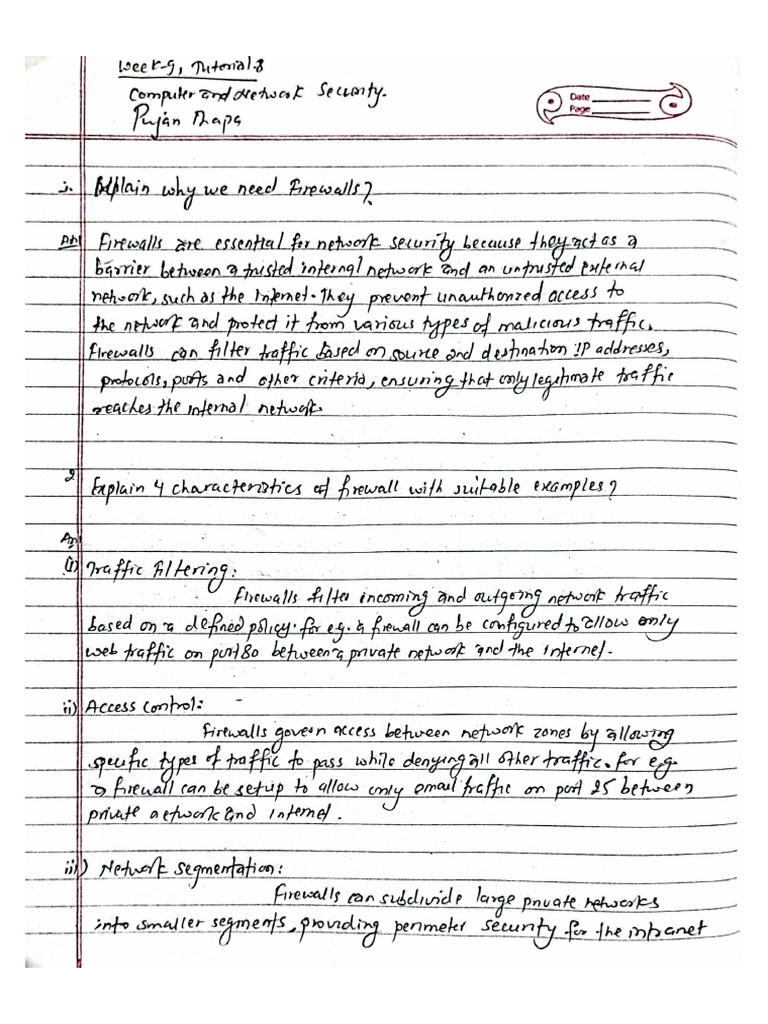 Week-9, Tutorial-8
Computer and Network Security.
Pujan Thapa
Date
Page
1. Explain why we need Firewalls?
Ans Firewalls are essential for network security because they act as a
barrier between a trusted internal network and an untrusted external
network, such as the Internet. They prevent unauthorized access to
the network and protect it from various types of malicious traffic.
Firewalls can filter traffic based on source and destination IP addresses,
protocols, ports and other criteria, ensuring that only legitimate traffic
reaches the internal network.
2 Explain 4 characteristics of firewall with suitable examples?
An
(i) Traffic Filtering:
Firewalls filter incoming and outgoing network traffic
based on a defined policy. for e.g. a firewall can be configured to allow only
web traffic on port 80 between a private network and the internet.
ii) Access Control: -
Firewalls govern access between network zones by allowing
specific types of traffic to pass while denying all other traffic. for e.g.
a firewall can be setup to allow only email traffic on port 25 between
private network and internet.
iii) Network Segmentation:
Firewalls can subdivide large private networks
into smaller segments, providing perimeter security for the intranet